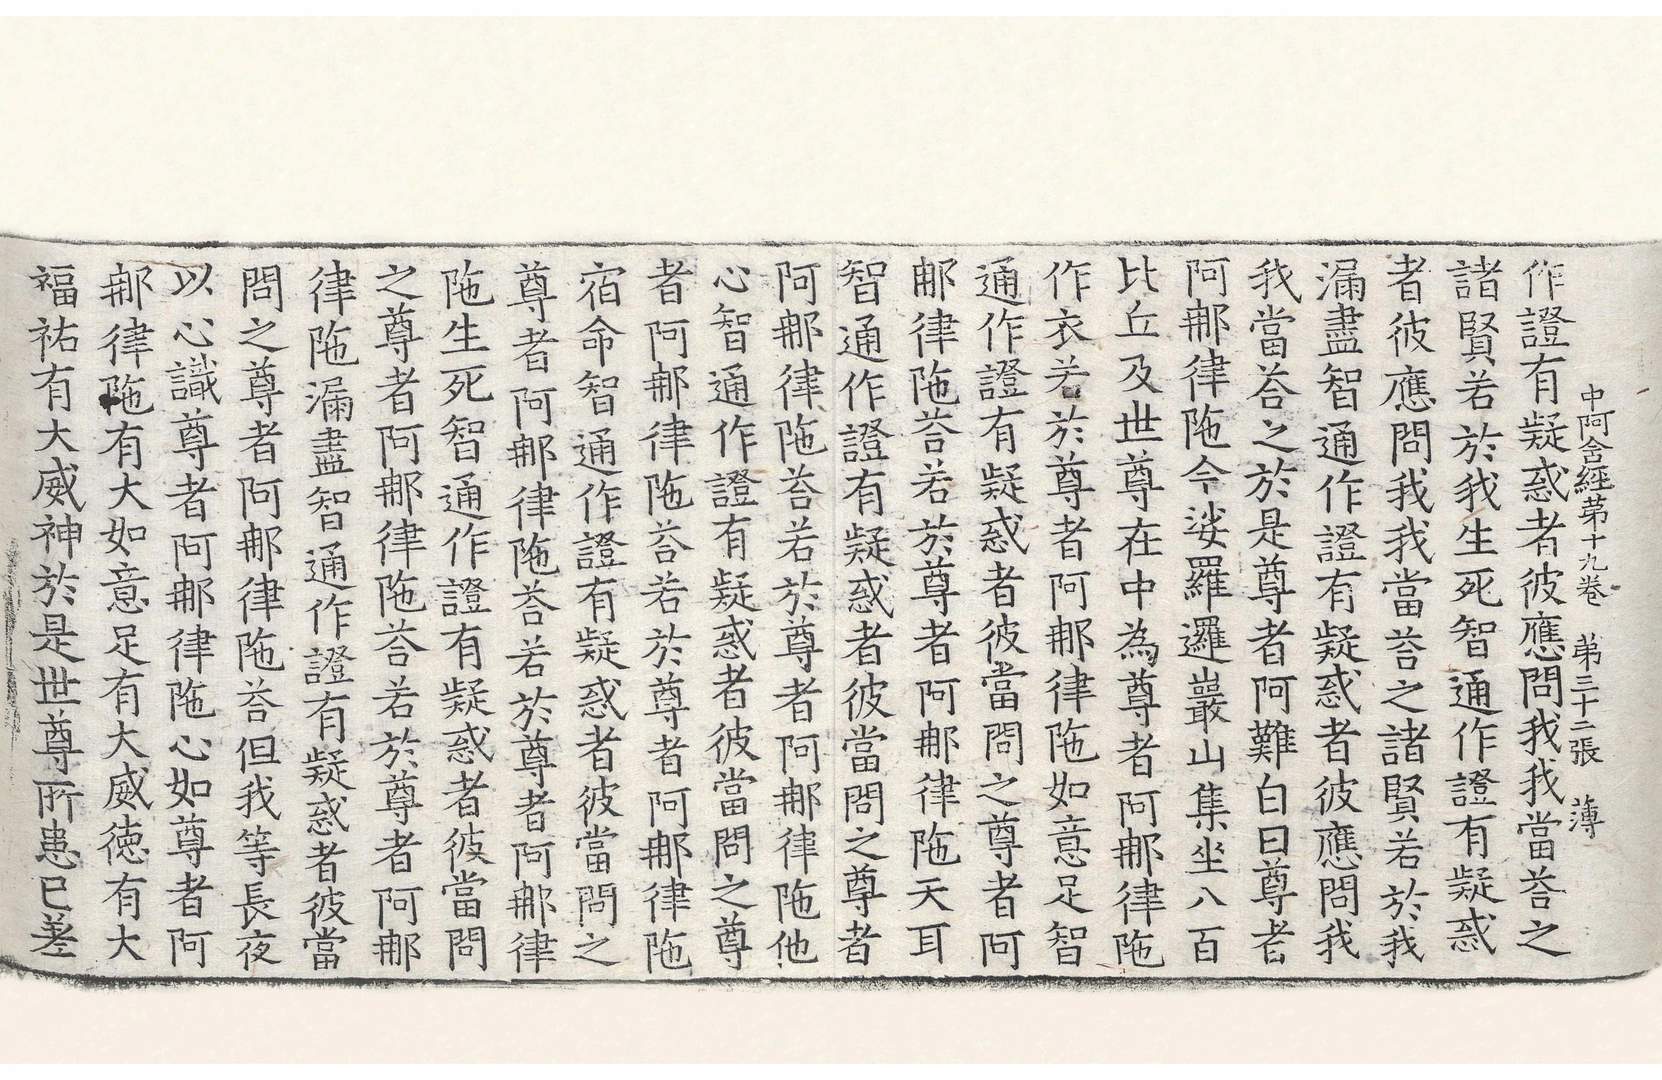 中阿含經第十九卷　第三十二張　薄
作證有疑惑者彼應問我我當荅之
諸賢若於我生死智通作證有疑惑
者彼應問我我當荅之諸賢若於我
漏盡智通作證有疑惑者彼應問我
我當荅之於是尊者阿難白曰尊者
阿那律陁今娑羅邏巖山集坐八百
比丘及世尊在中為尊者阿那律陁
作衣若於尊者阿那律陁如意足智
通作證有疑惑者彼當問之尊者阿
那律陁荅若於尊者阿那律陁天耳
智通作證有疑惑者彼當問之尊者
阿那律陁荅若於尊者阿那律陁他
心智通作證有疑惑者彼當問之尊
者阿那律陁荅若於尊者阿那律陁
宿命智通作證有疑惑者彼當問之
尊者阿那律陁荅若於尊者阿那律
陁生死智通作證有疑惑者彼當問
之尊者阿那律陁荅若於尊者阿那
律陁漏盡智通作證有疑惑者彼當
問之尊者阿那律陁荅但我等長夜
以心識尊者阿那律陁心如尊者阿
那律陁有大如意足有大威德有大
福祐有大威神於是世尊所患已差